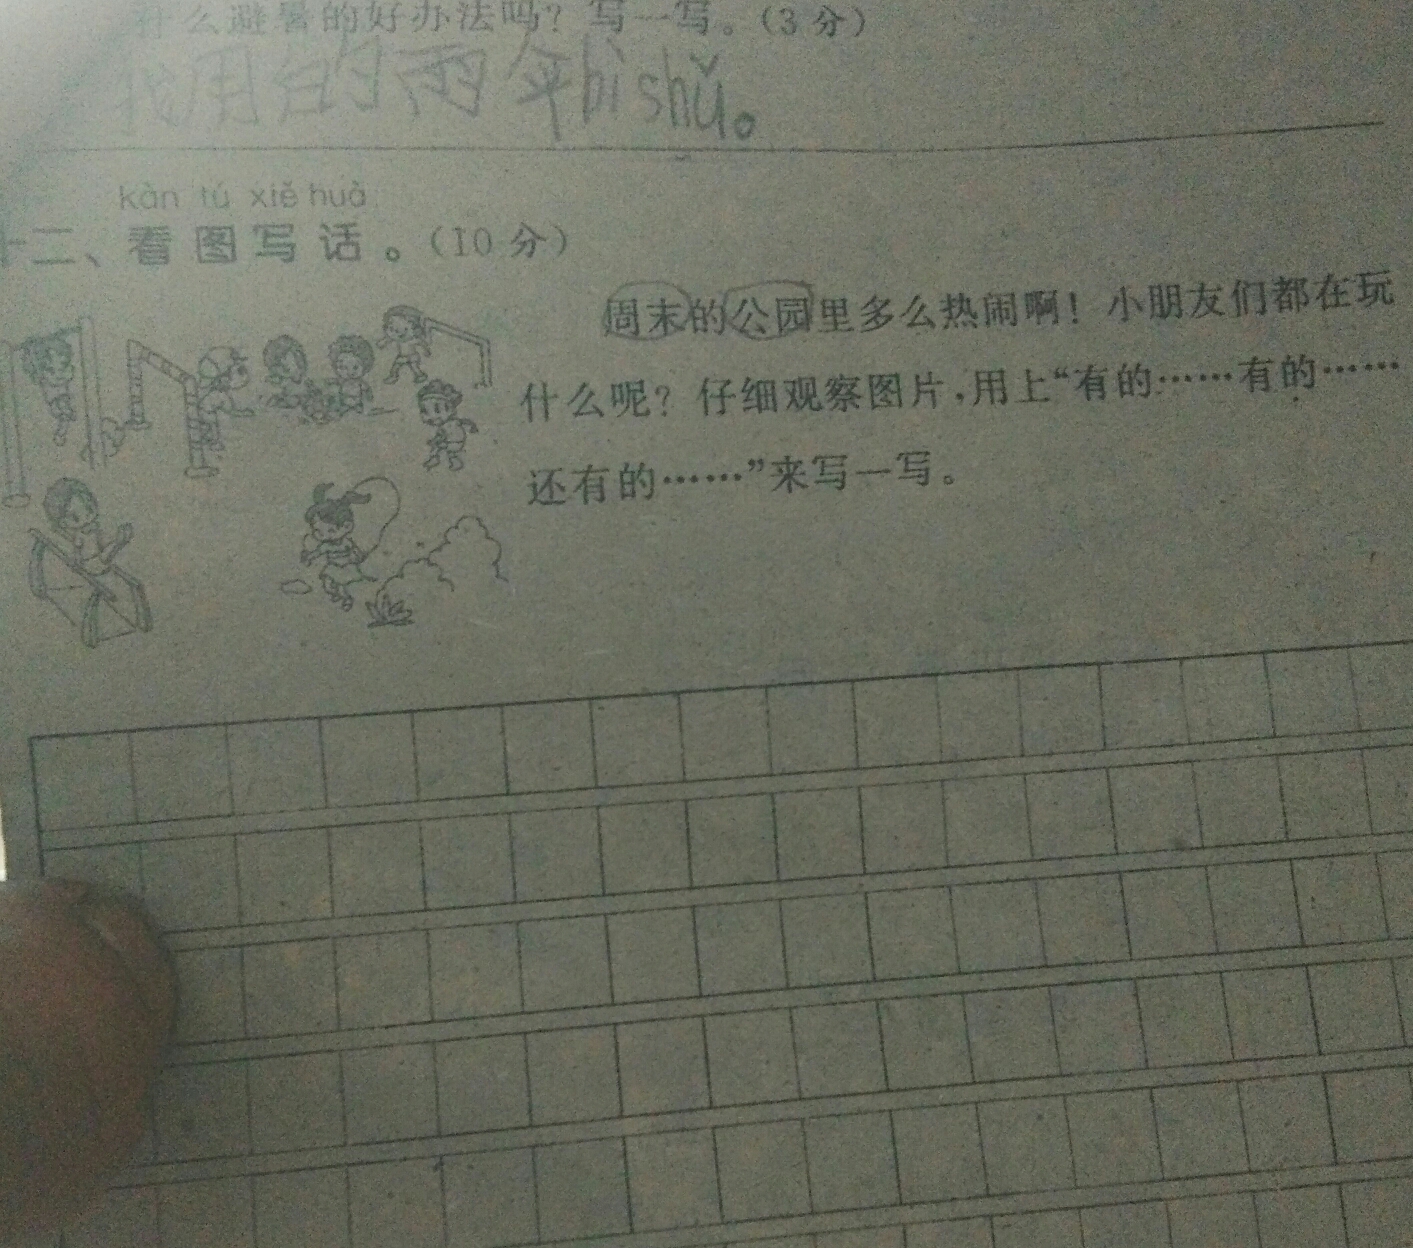 什么避暑的好办法吗？写一写。（3分）
我用的雨伞bì shǔ。
kàn tú xiě huà
十二、看图写话。（10分）
周末的公园里多么热闹啊！小朋友们都在玩
什么呢？仔细观察图片，用上“有的……有的……
还有的……”来写一写。